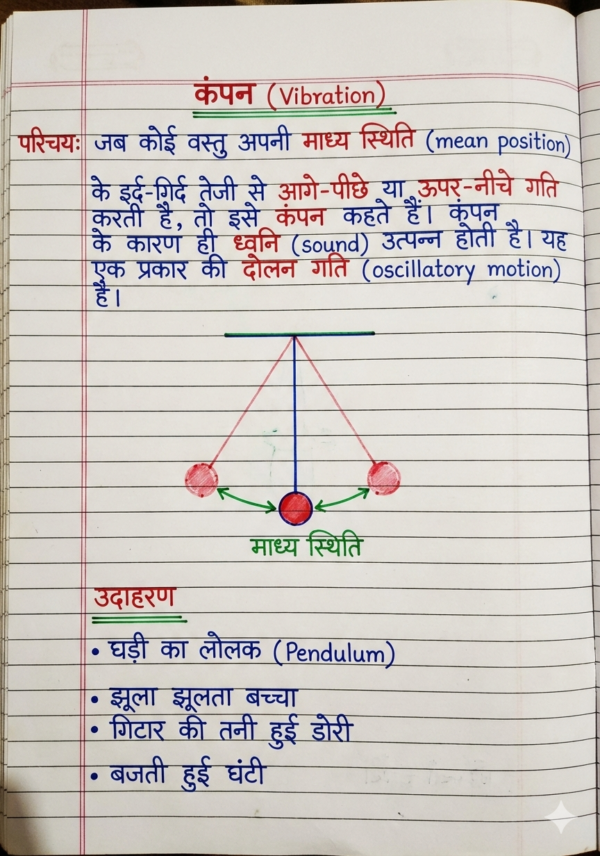 कंपन (Vibration)
परिचयः जब कोई वस्तु अपनी माध्य स्थिति (mean position)
के इर्द-गिर्द तेजी से आगे-पीछे या ऊपर-नीचे गति
करती है, तो इसे कंपन कहते हैं। कंपन
के कारण ही ध्वनि (sound) उत्पन्न होती है। यह
एक प्रकार की दोलन गति (oscillatory motion)
है।
माध्य स्थिति
उदाहरण
• घड़ी का लोलक (Pendulum)
• झूला झूलता बच्चा
• गिटार की तनी हुई डोरी
• बजती हुई घंटी